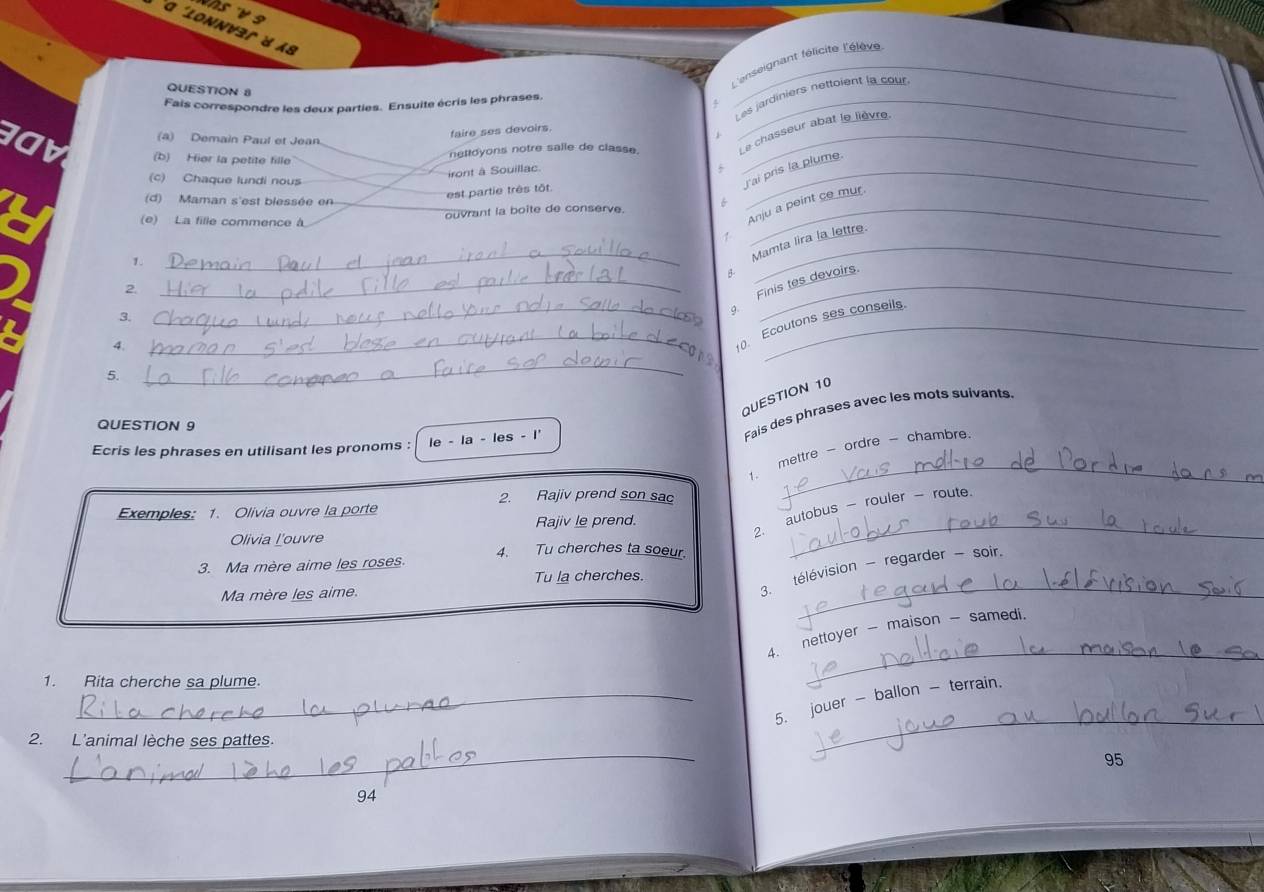 BY R JEANNOT D.
QUESTION 8
Fais correspondre les deux parties. Ensuite écris les phrases.
(a) Demain Paul et Jean
faire ses devoirs.
(b) Hier la petite fille
nettoyons notre salle de classe.
(c) Chaque lundi nous
iront à Souillac.
(d) Maman s'est blessée en
est partie très tôt.
(e) La fille commence à
ouvrant la boîte de conserve.
1. Demain Paul et jean iront a Souillac
2. Hier la petite fille est partie très
3. Chaque lundi nous nettoyons notre salle de
4. maman s'est blese en ouvrant la boite de cons
5. La fille a faire devoir
QUESTION 9
Ecris les phrases en utilisant les pronoms : le - la - les - l'
Exemples: 1. Olivia ouvre la porte
Olivia l'ouvre
2. Rajiv prend son sac
Rajiv le prend.
3. Ma mère aime les roses.
Ma mère les aime.
4. Tu cherches ta soeur.
Tu la cherches.
1. Rita cherche sa plume.
Rita cherche la plume
2. L'animal lèche ses pattes.
L'animal lèhe les pattes
94
L'enseignant félicite l'élève.
Les jardiniers nettoient la cour.
Le chasseur abat le lièvre.
J'ai pris la plume.
7. Anju a peint ce mur.
8. Mamta lira la lettre.
9. Finis tes devoirs.
10. Ecoutons ses conseils.
QUESTION 10
Fais des phrases avec les mots suivants.
1. mettre - ordre - chambre.
je vais mettre de l'ordre dans m
2. autobus - rouler - route.
L'autobus roule sur la route
3. télévision - regarder - soir.
je regarde la télévision soir
4. nettoyer - maison - samedi.
je nettoie la maison le sa
5. jouer - ballon - terrain.
je joue au ballon sur l
95